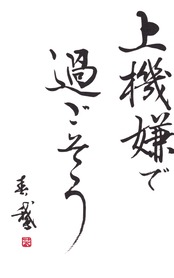 上機嫌で
過ごそう